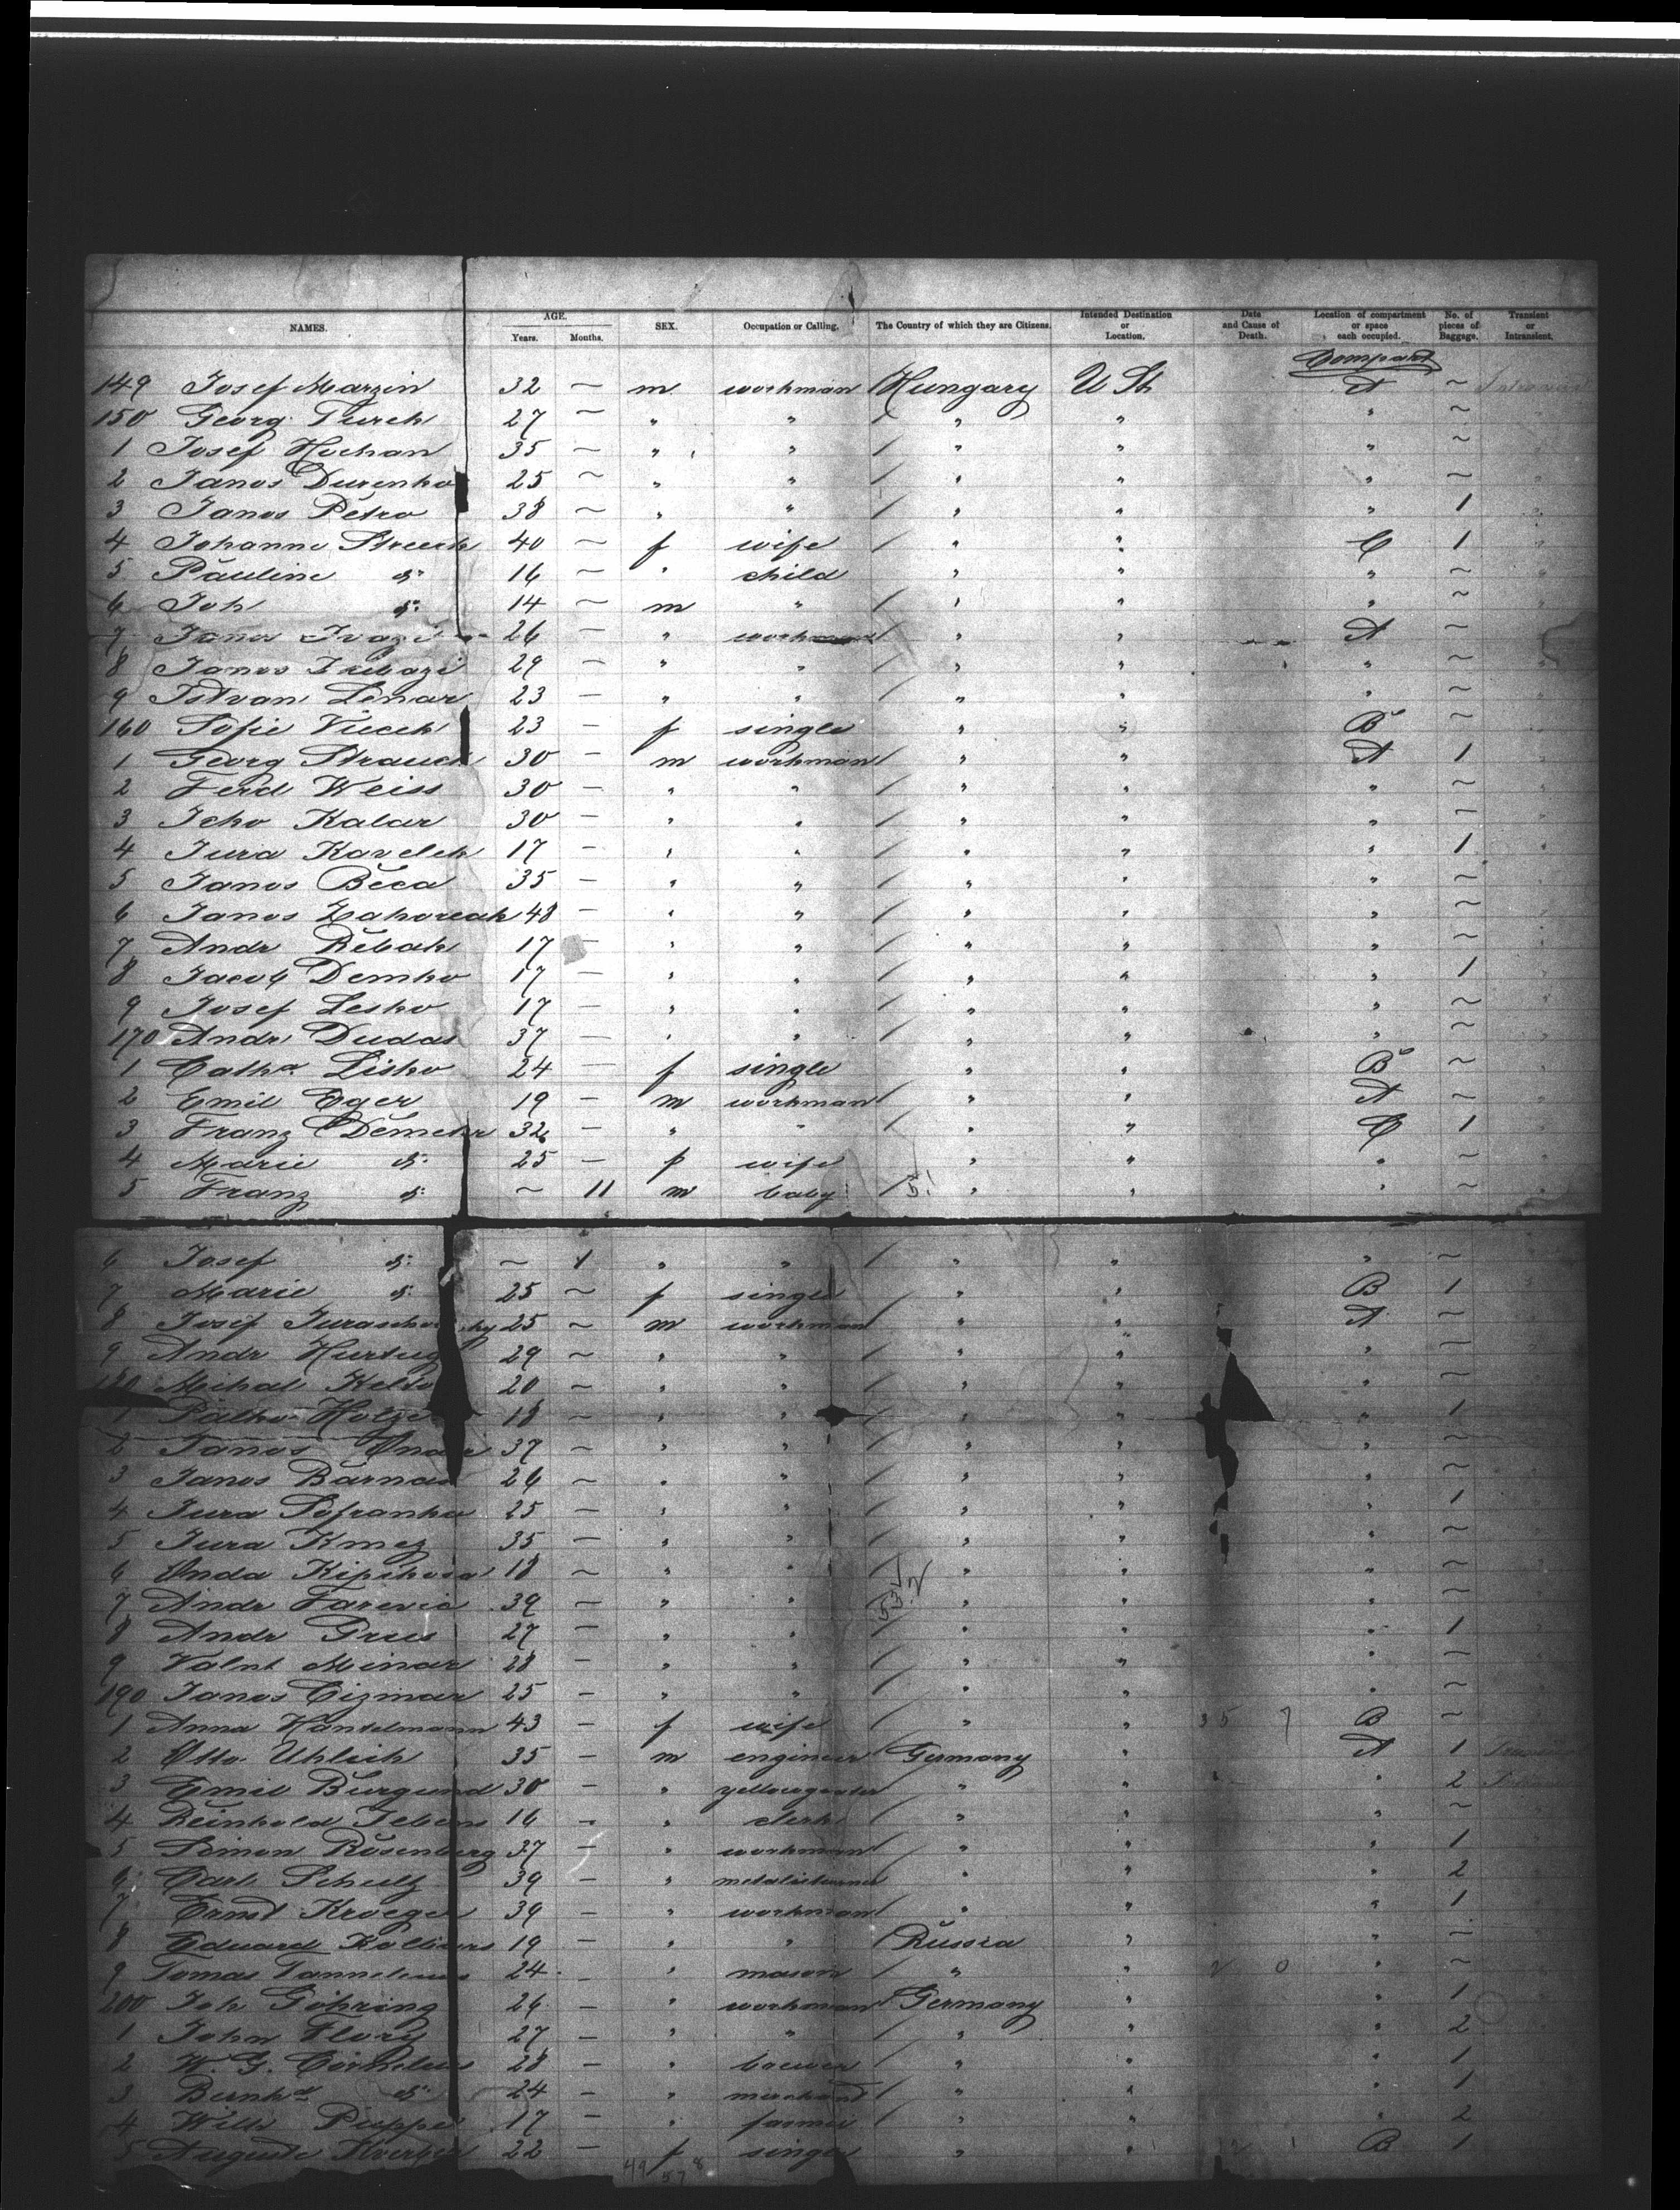 NAMES. AGE. Years. Months. SEX. Occupation or Calling. The Country of which they are Citizens. Intended Destination or Location. Date and Cause of Death. Location of compartment or space each occupied. No. of pieces of Baggage. Transient or Intransient.
Compart
149 Josef Marzin 32 ~ m workman Hungary U St A ~
150 Georg Turek 27 ~ " " " " " ~
1 Josef Huchan 35 ~ " " " " " ~
2 Janos Durenko 25 ~ " " " " " ~
3 Janos Petro 38 ~ " " " " " 1
4 Johanne 40 ~ f wife " " C 1
5 Pauline do 16 ~ " child " " " ~
6 Joh do 14 ~ m " " " " ~
7 Janos 26 ~ " workman " " A ~
8 Janos 29 ~ " " " " " ~
9 Istvan Lenar 23 — " " " " " ~
160 Sofie 23 — f single " " B ~
1 Georg Strauch 30 — m workman " " A 1
2 Ferd Weiss 30 — " " " " " ~
3 Kalar 30 — " " " " " ~
4 Jura 17 — " " " " " 1
5 Janos Beca 35 — " " " " " ~
6 Janos Zahoreak 48 — " " " " " ~
7 Andr Rebak 17 — " " " " " ~
8 Jacob Demko 17 — " " " " " 1
9 Josef Lesko 17 — " " " " " ~
170 Andr Dudas 37 — " " " " " ~
1 Catha Lisko 24 — f single " " B ~
2 Emil Eger 19 — m workman " " A ~
3 Franz Demeter 32 — " " " " C 1
4 Marie do 25 — f wife " " " ~
5 Franz do ~ 11 m baby " " " ~
6 Josef do ~ 1 " " " " " ~
7 Marie do 25 ~ f single " " B 1
8 Josef 25 ~ m workman " " A ~
9 Andr 29 ~ " " " " " ~
180 Mihal 20 ~ " " " " " ~
1 18 ~ " " " " " 1
2 Janos 37 ~ " " " " " ~
3 Janos Barnas 26 ~ " " " " " ~
4 Jura Sofranko 25 ~ " " " " " 1
5 Jura Kmez 35 ~ " " " " " ~
6 18 ~ " " " " " ~
7 Andr 39 — " " " " " ~
8 Andr 27 — " " " " " 1
9 Valnt Minar 28 — " " " " " ~
190 Janos Cizmar 25 — " " " " " ~
1 Anna Hantelmann 43 — f wife " " B ~
2 Otto Uhlich 35 — m engineer Germany " A 1
3 Emil Burgund 30 — " " " " 2
4 Reinhold 16 — " clerk " " " ~
5 Simon Rosenberg 37 — " workman " " " 1
6 Carl Schulz 39 — " " " " 2
7 Ernst Kroeger 39 — " workman " " " 1
8 Eduard 19 — " " Russia " " ~
9 Tomas 24 — " mason " " " ~
200 Joh Göhring 26 — " workman Germany " " 1
1 John Flory 27 — " " " " " 2
2 W. G. Cornelius 28 — " brewer " " " 1
3 Bernhd do 24 — " merchant " " " 1
4 Willi 17 — " farmer " " " 2
5 Auguste 22 — f single " " B 1